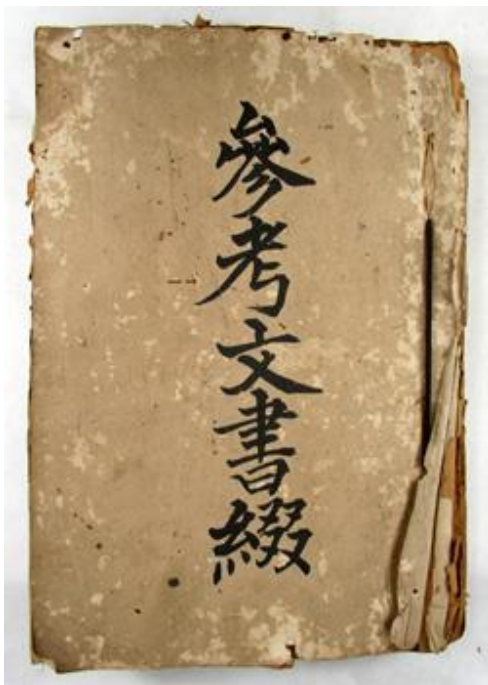 參考文書綴